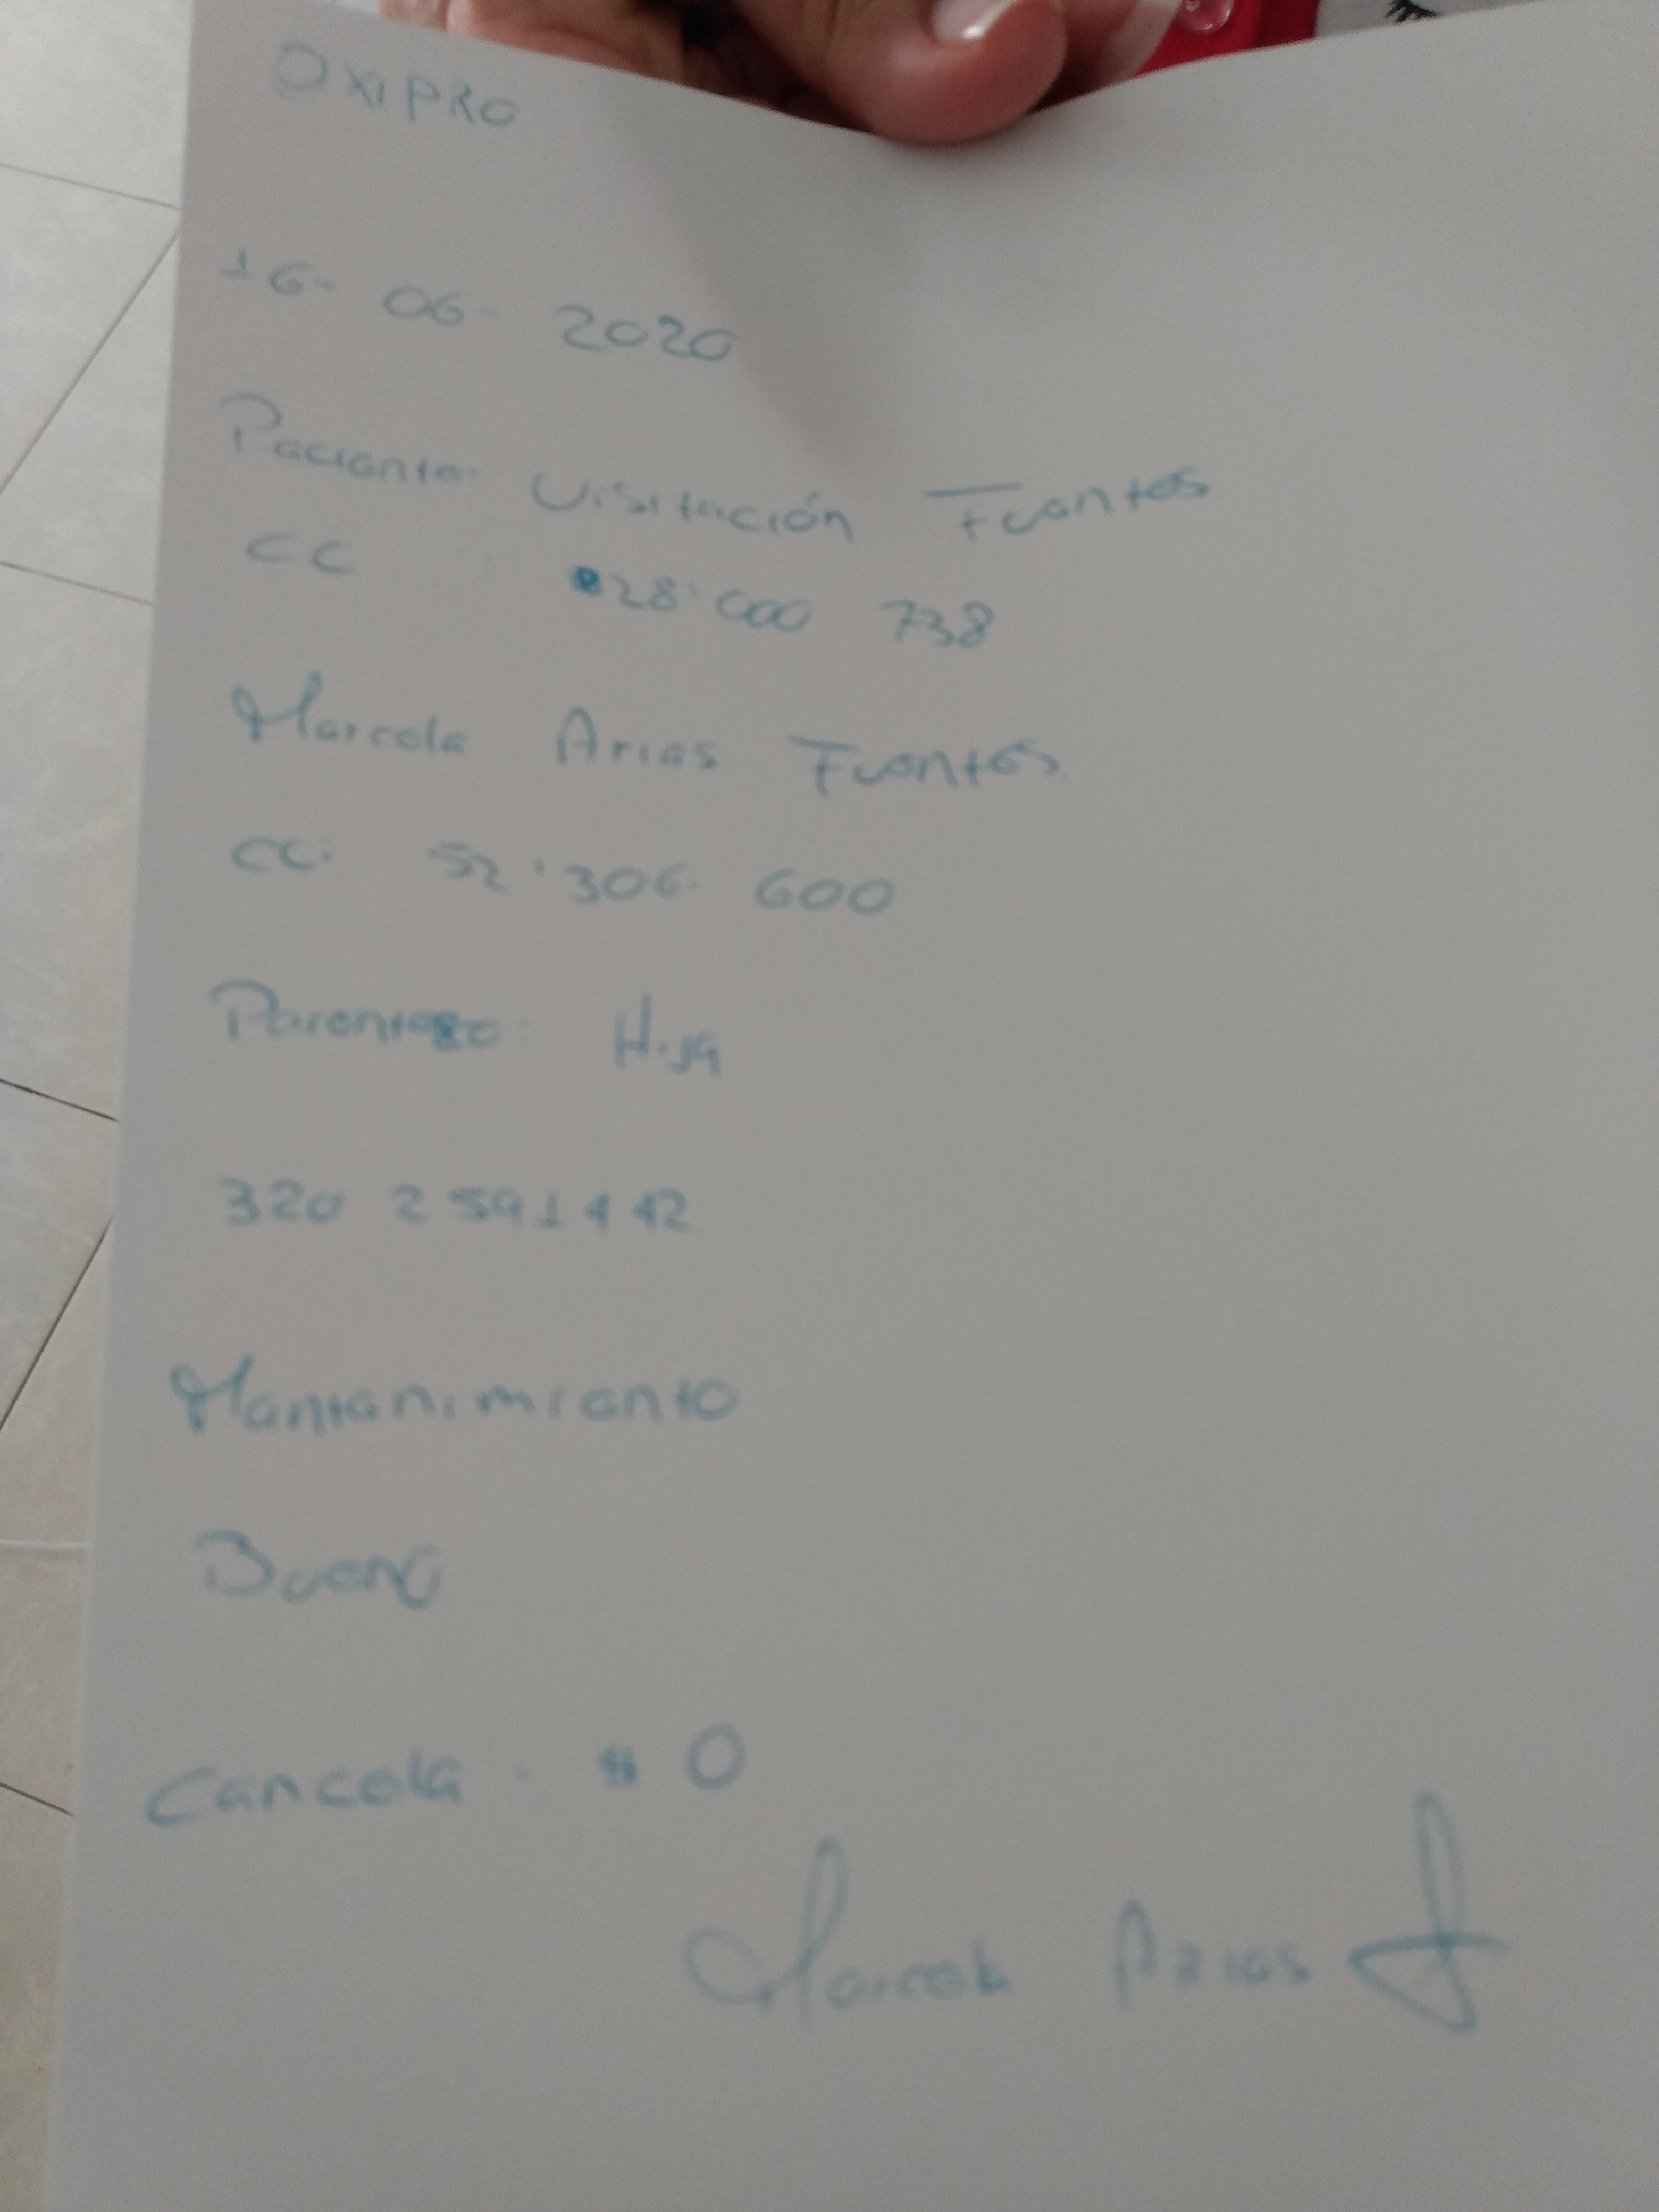 OXIPRO
16- 06- 2020
Paciente: Visitación Fuentes
CC 28'000 738
Marcela Arias Fuentes
CC. 52'306. 600
Parentezco: Hija
320 2591442
Mantenimiento
Bueno
Cancela. $ 0
Marcela Arias F